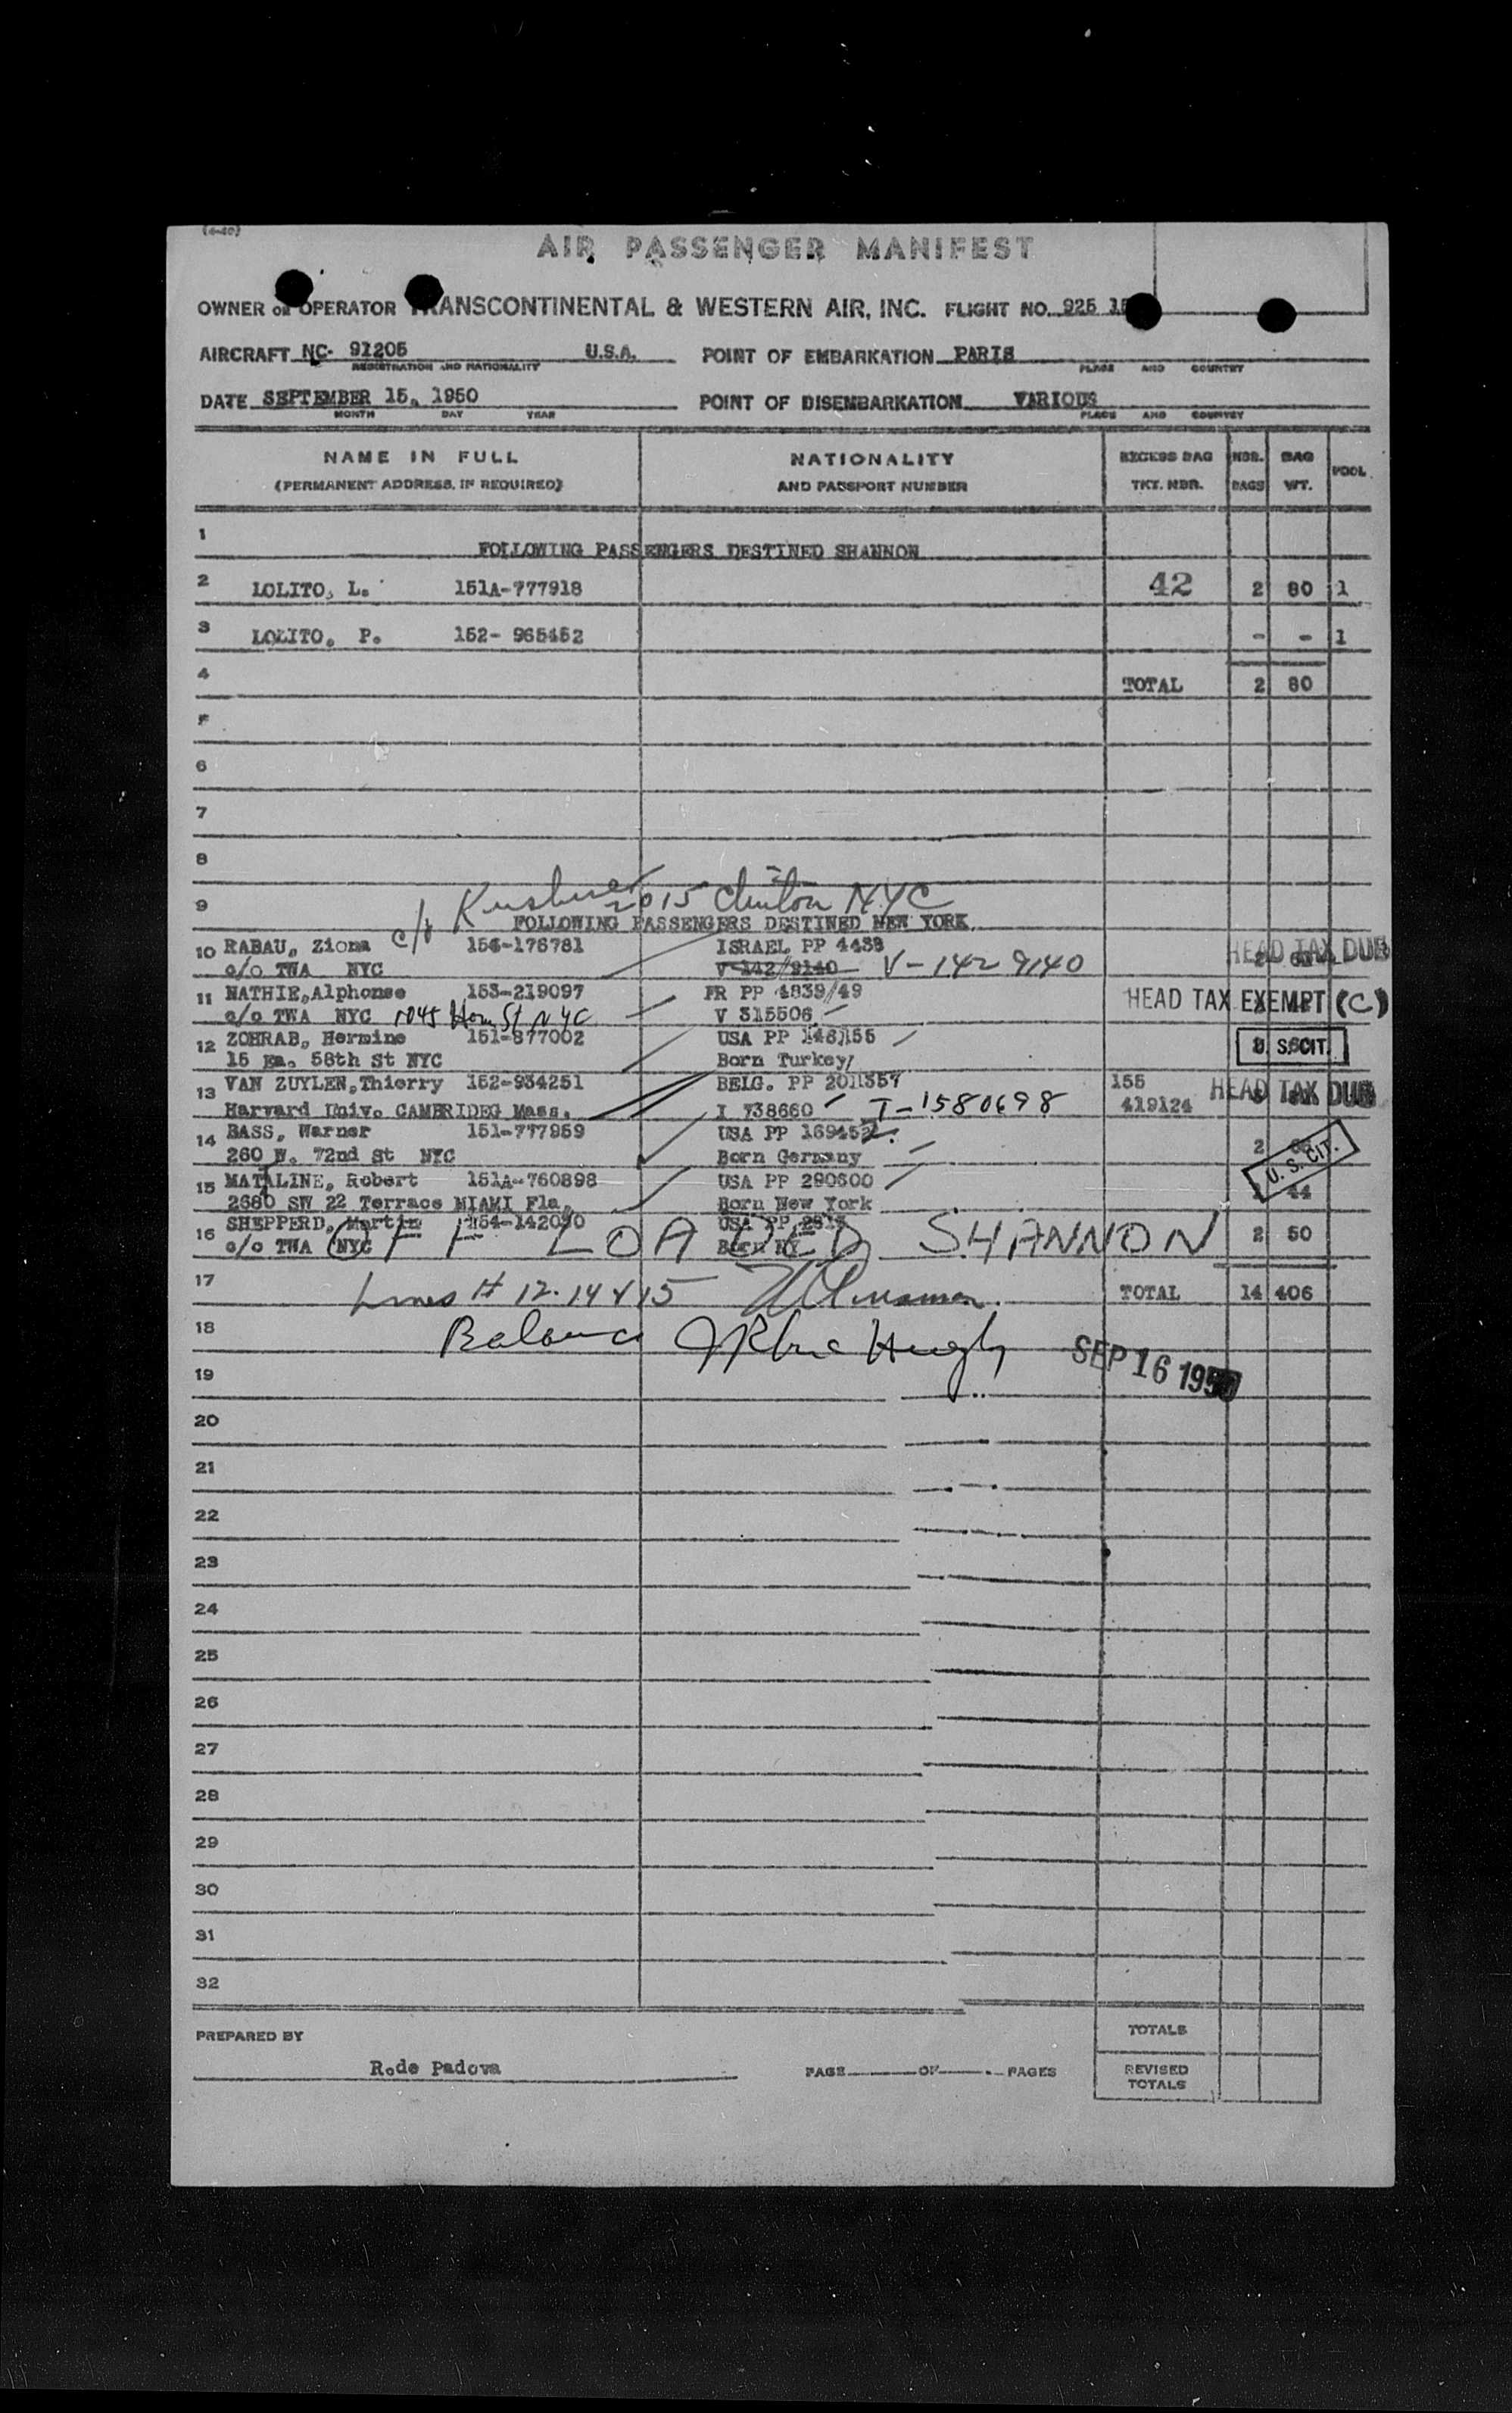 (4-40)
AIR PASSENGER MANIFEST
OWNER OR OPERATOR TRANSCONTINENTAL & WESTERN AIR, INC. FLIGHT NO. 925
AIRCRAFT NC- 91205 U.S.A. POINT OF EMBARKATION PARIS
REGISTRATION AND NATIONALITY PLACE AND COUNTRY
DATE SEPTEMBER 15, 1950 POINT OF DISEMBARKATION VARIOUS
MONTH DAY YEAR PLACE AND COUNTRY
NAME IN FULL NATIONALITY EXCESS BAG NBR. BAG POOL
(PERMANENT ADDRESS, IF REQUIRED) AND PASSPORT NUMBER TKT. NBR. BAGS WT.
1
FOLLOWING PASSENGERS DESTINED SHANNON
2 LOLITO, L. 151A-777918 42 2 80 1
3 LOLITO, P. 152- 965452 - - 1
4 TOTAL 2 80
5
6
7
8
9 c/o 2015 Clinton NYC
FOLLOWING PASSENGERS DESTINED NEW YORK
10 RABAU, Ziona 154-176781 ISRAEL PP 4433 HEAD TAX DUE
c/o TWA NYC V-142/9140 V-1429140
11 NATHIE,Alphonse 153-219097 FR PP 4839/49 HEAD TAX EXEMPT (C)
c/o TWA NYC St NYC V 315506
12 ZOHRAB, Hermine 151-877002 USA PP 146155 U.S. CIT.
15 Ea. 58th St NYC Born Turkey
13 VAN ZUYLEN,Thierry 152-934251 BELG. PP 2011357 155 HEAD TAX DUE
Harvard Univ. CAMBRIDEG Mass. I 738660 I-1580698 419124
14 BASS, Warner 151-777959 USA PP 169452 2
260 W. 72nd St NYC Born Germany U.S. CIT.
15 MATALINE, Robert 151A-760898 USA PP 290600 44
2680 SW 22 Terrace MIAMI Fla, Born New York
16 SHEPPERD, Martin 154-142090 USA PP 2 50
c/o TWA NYC Born NY
OFF LOADED SHANNON
17 Lines # 12-14 & 15 TOTAL 14 406
18 Balance
SEP 16 1950
19
20
21
22
23
24
25
26
27
28
29
30
31
32
PREPARED BY TOTALS
R.de Padova PAGE OF PAGES REVISED
TOTALS